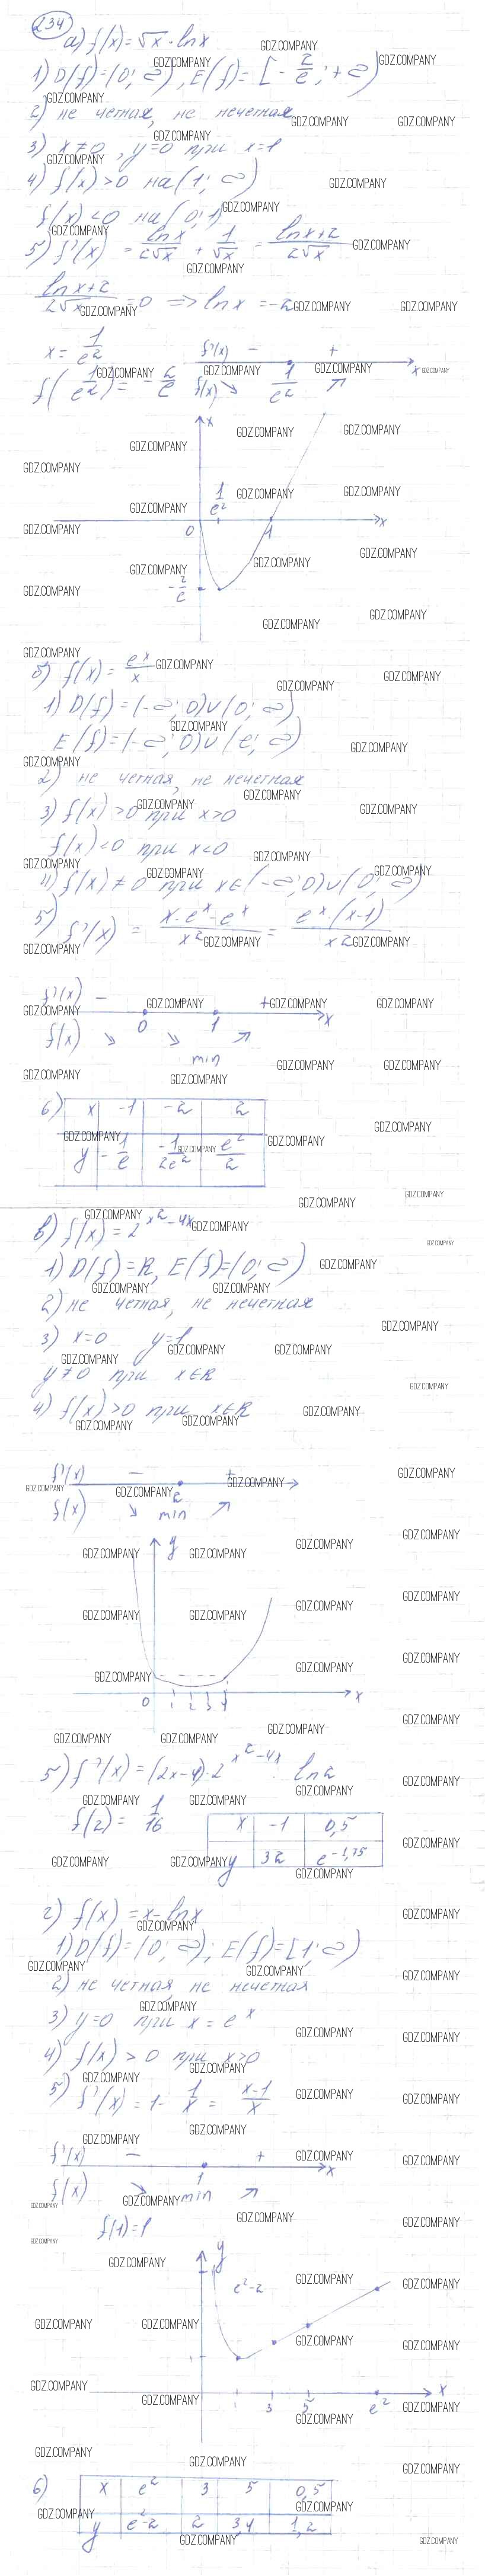 234
а) f(x) = √x · lnx
1) D(f) = (0; ∞), E(f) = [-2/e; +∞)
2) не четная, не нечетная
3) x ≠ 0, y = 0 при x = 1
4) f(x) > 0 на (1; ∞)
f(x) < 0 на (0; 1)
5) f'(x) = lnx/2√x + 1/√x = lnx+2/2√x
lnx+2/2√x = 0 => lnx = -2
x = 1/e²
f'(x) - + x
f(1/e²) = -2/e f(x) ↘ 1/e² ↗
x
1/e²
0 1 x
-2/e
б) f(x) = eˣ/x
1) D(f) = (-∞; 0) ∪ (0; ∞)
E(f) = (-∞; 0) ∪ (e; ∞)
2) не четная, не нечетная
3) f(x) > 0 при x > 0
f(x) < 0 при x < 0
4) f(x) ≠ 0 при x ∈ (-∞; 0) ∪ (0; ∞)
5) f'(x) = x·eˣ-eˣ/x² = eˣ·(x-1)/x²
f'(x) - +
0 1 x
f(x) ↘ ↘ ↗
min
6) x -1 -2 2
y -1/e -1/2e² e²/2
в) f(x) = 2^(x²-4x)
1) D(f) = R, E(f) = (0; ∞)
2) не четная, не нечетная
3) x = 0 y = 1
y ≠ 0 при x ∈ R
4) f(x) > 0 при x ∈ R
f'(x) - +
2
f(x) ↘ min ↗
y
0 1 2 3 4 x
5) f'(x) = (2x-4)·2^(x²-4x) · ln2
f(2) = 1/16
x -1 0,5
y 32 e^(-1,75)
г) f(x) = x - lnx
1) D(f) = (0; ∞); E(f) = [1; ∞)
2) не четная, не нечетная
3) y = 0 при x = eˣ
4) f(x) > 0 при x > 0
5) f'(x) = 1 - 1/x = x-1/x
f'(x) - +
1 x
f(x) ↘ min ↗
f(1) = 1
y
e²-2
1
1 3 5 e² x
6) x e² 3 5 0,5
y e²-2 2 3,4 1,2
GDZ.COMPANY